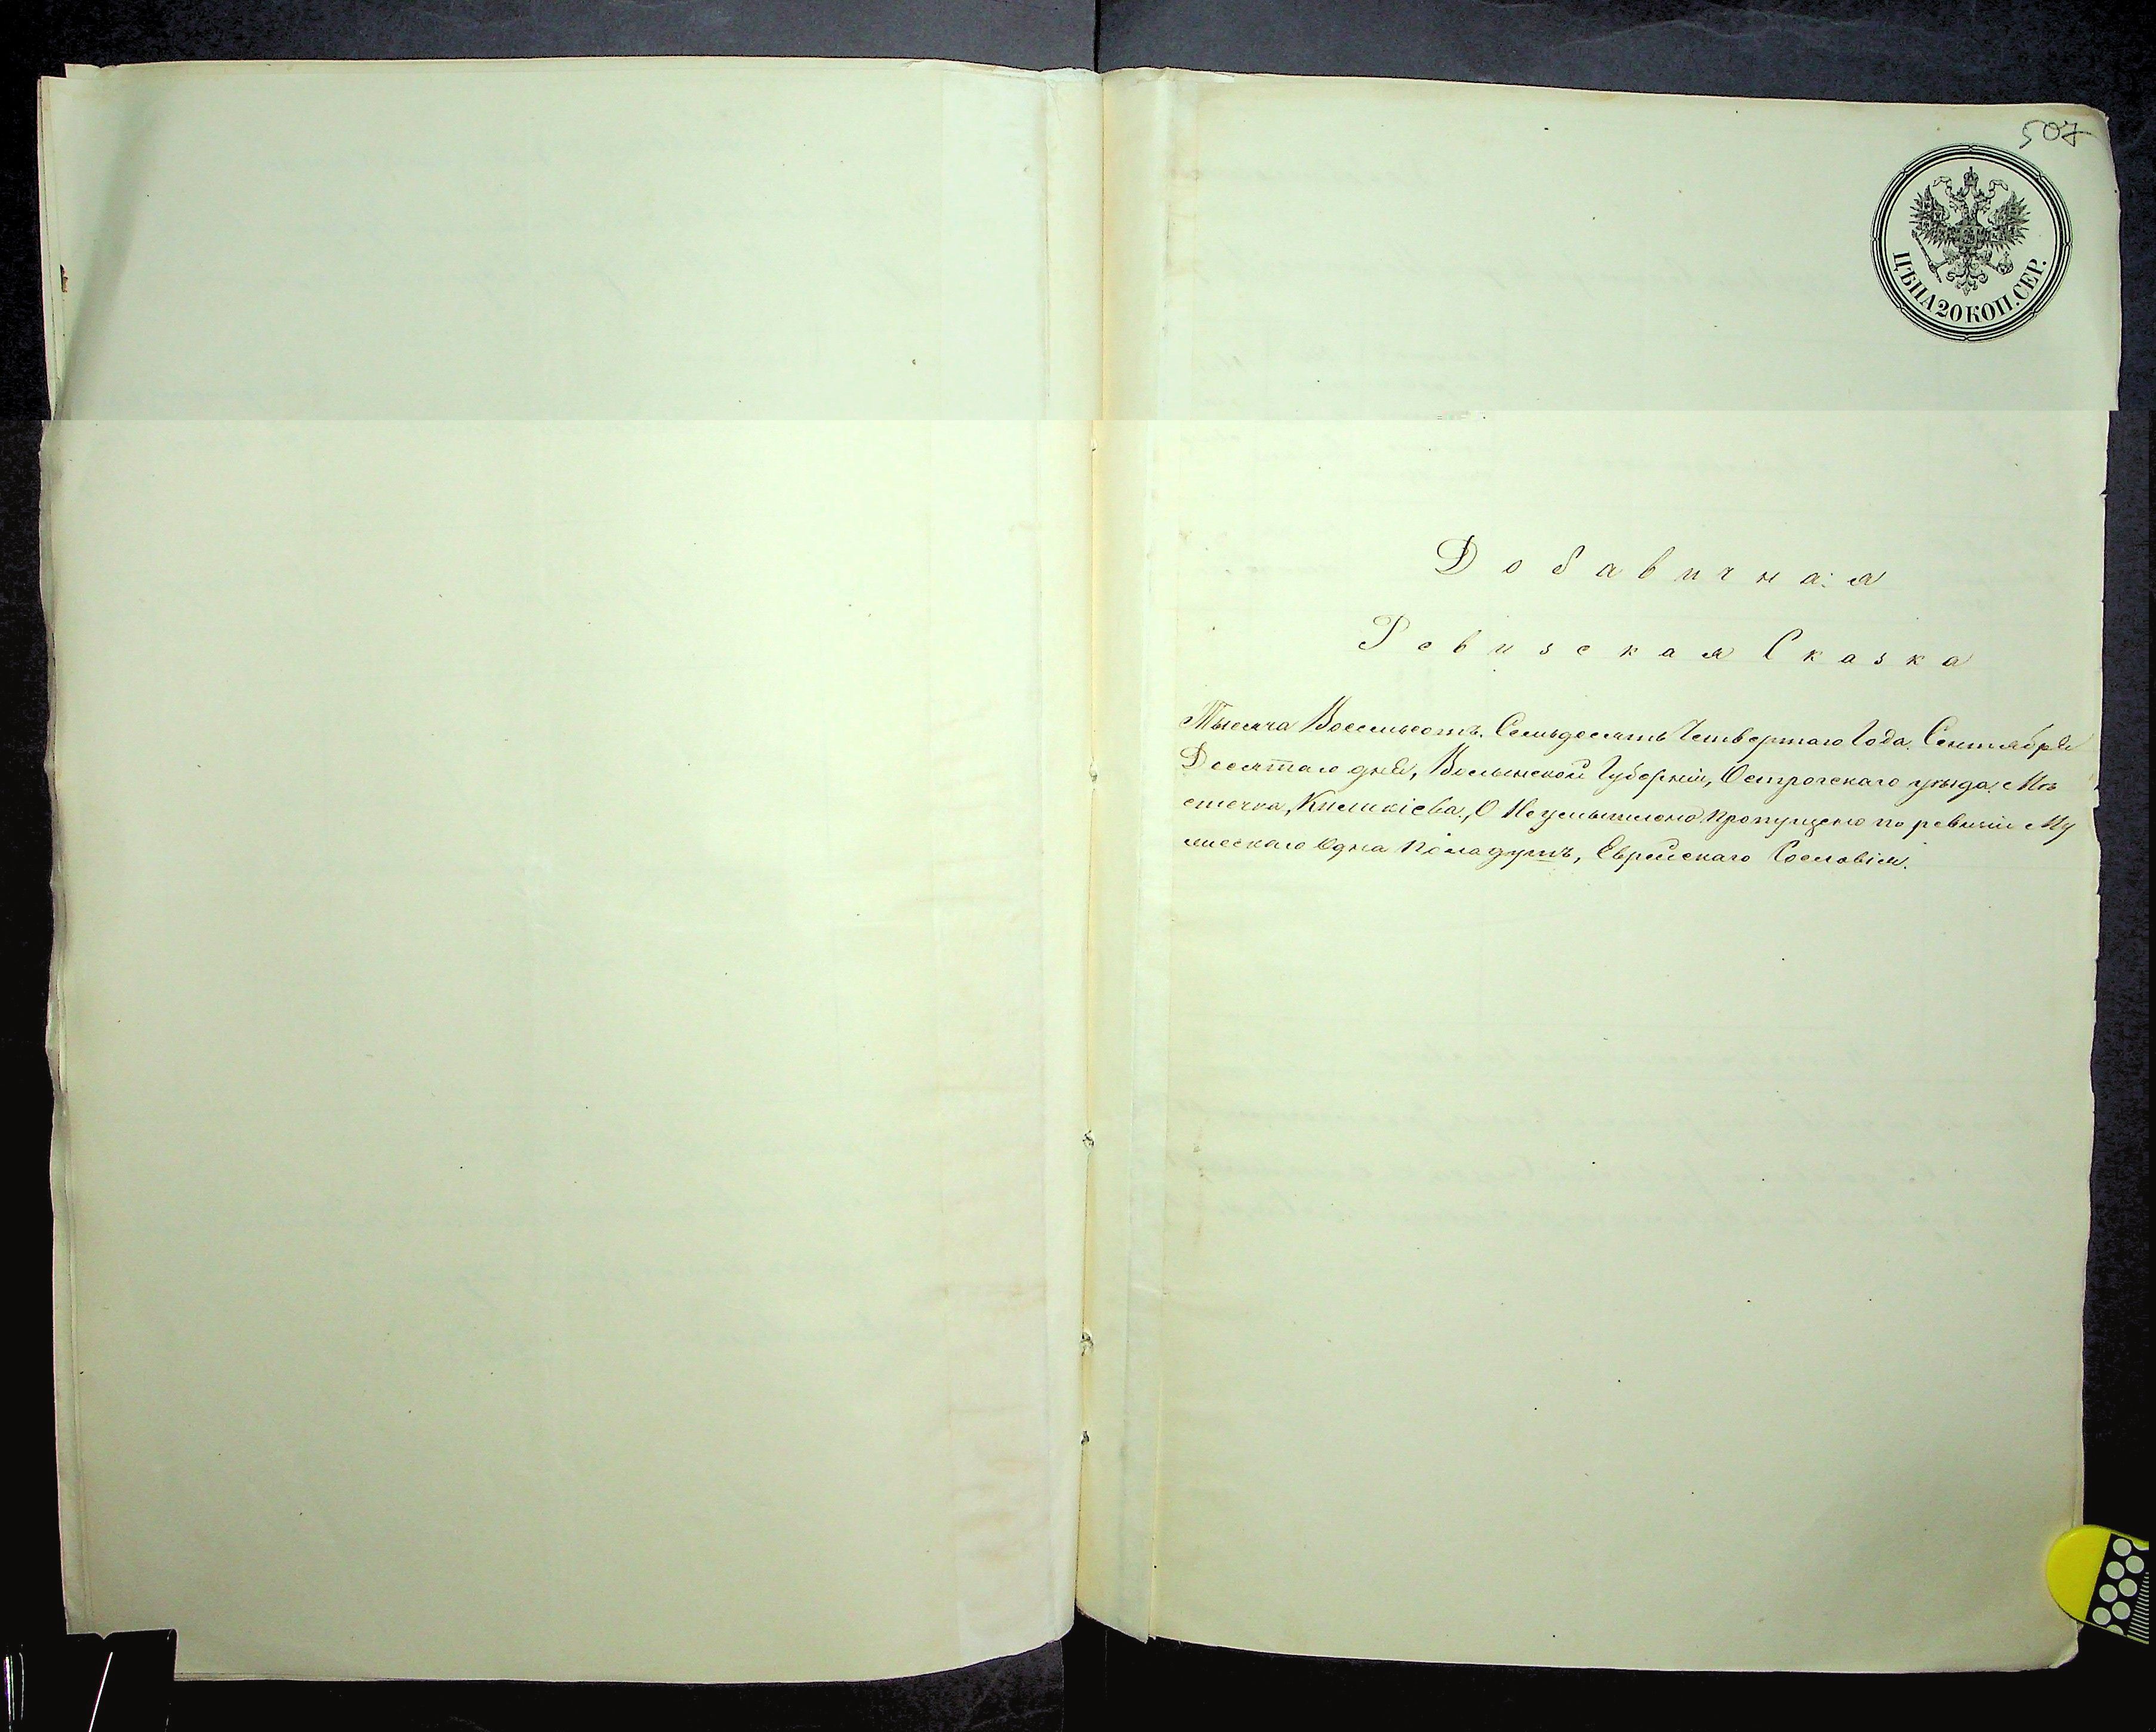 507
ЦѢНА 20 КОП. СЕР.
Добавичная
Ревизская Сказка
Тысяча Восемьсотъ Семьдесять Четвертаго Года Сентября
Десятаго дня, Волынской Губерніи, Острогскаго уѣзда Мѣ
стечка, Киликіева, О Неумышлено пропущено по ревизіи Му
жескаго Одна Пола душъ, Еврейскаго Сословія.